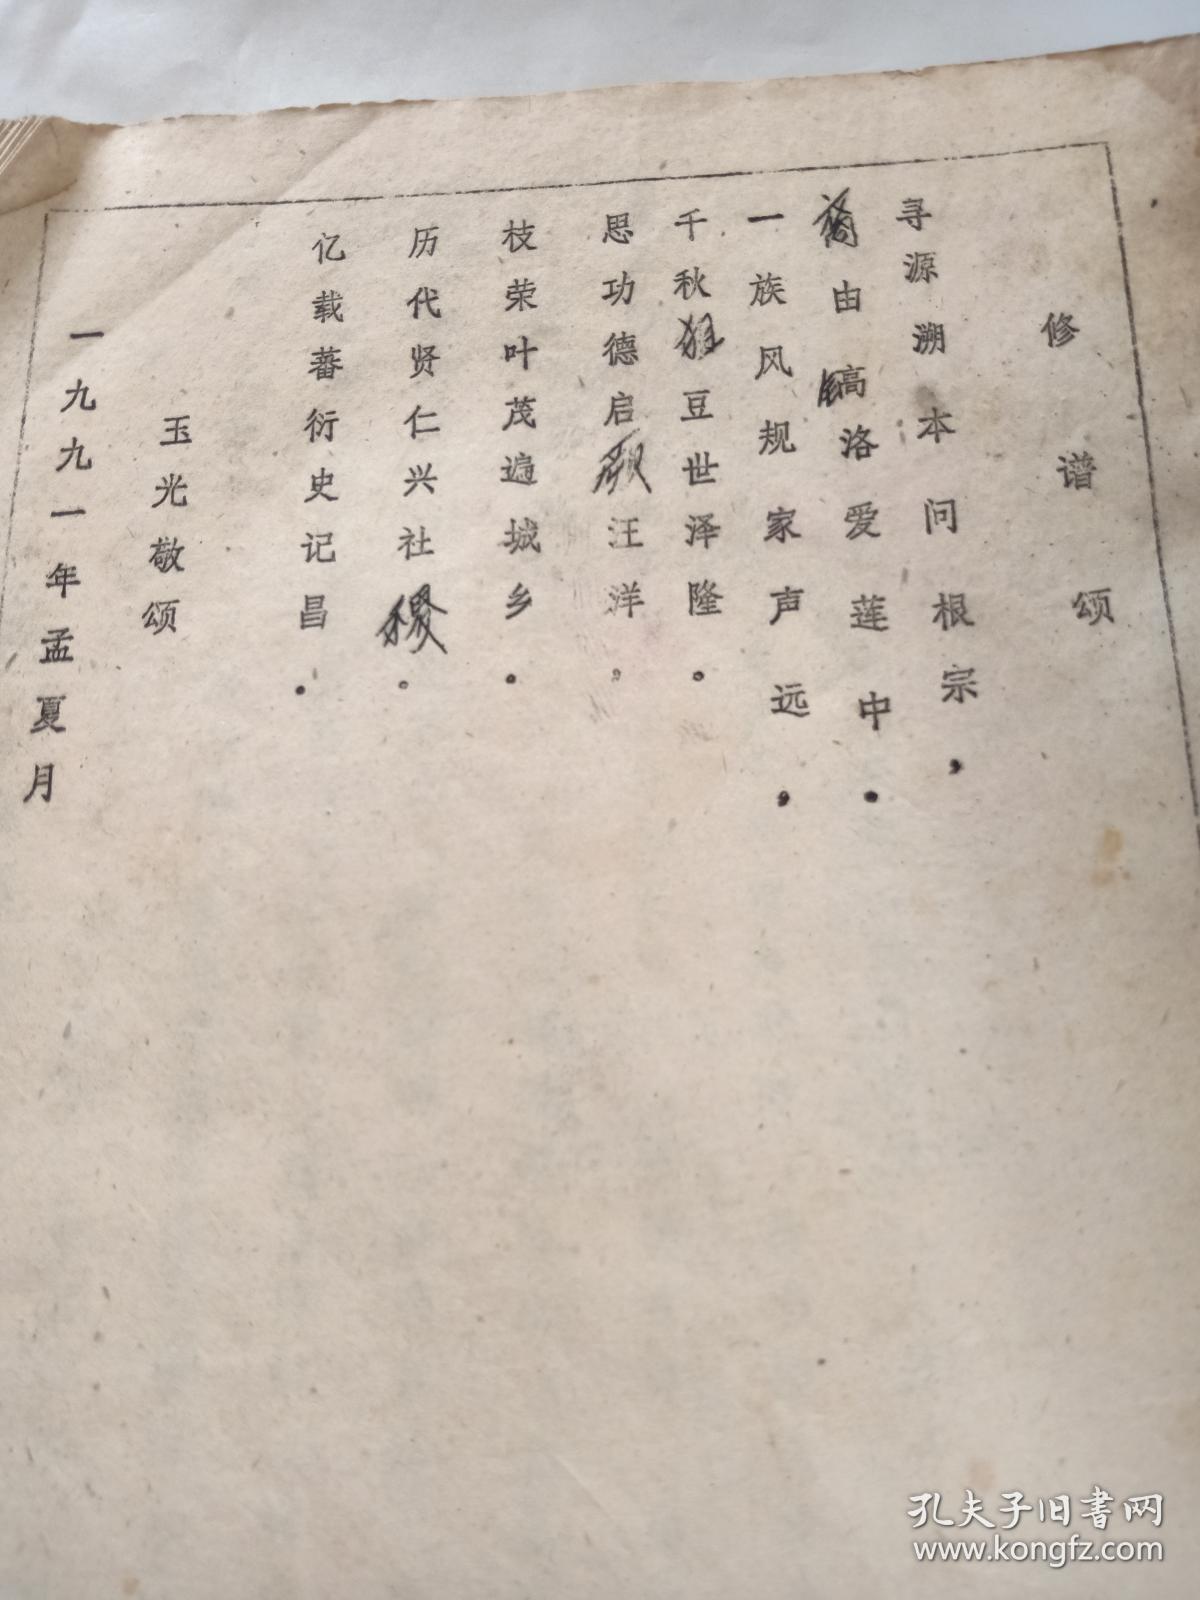 修谱颂
寻源溯本问根宗，
由镐洛爱莲中．
一族风规家声远，
千秋俎豆世泽隆．
思功德启汪洋。
枝荣叶茂遍城乡．
历代贤仁兴社稷。
亿载蕃衍史记昌．
玉光敬颂
一九九一年孟夏月
孔夫子旧书网
www.kongfz.com